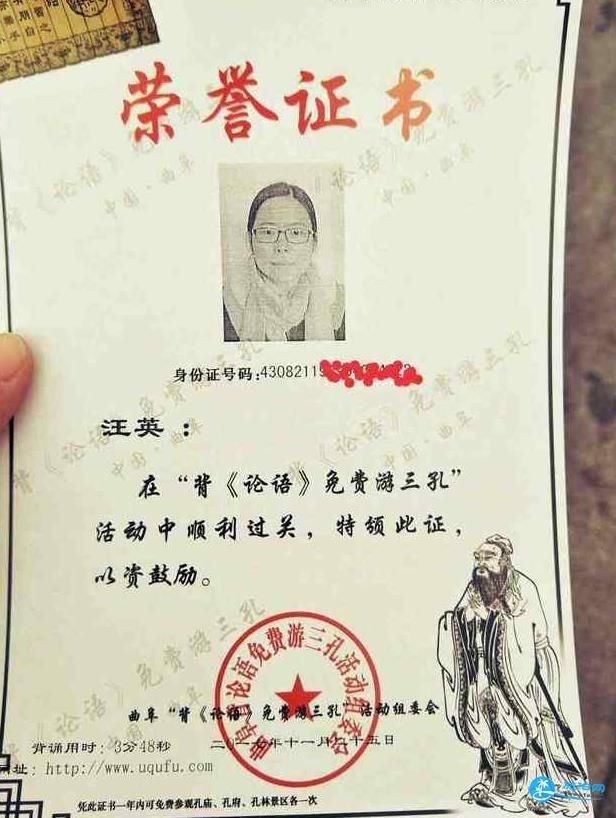 荣誉证书
身份证号码:43082119
汪英：
在“背《论语》免费游三孔”
活动中顺利过关，特颁此证，
以资鼓励。
曲阜背论语免费游三孔活动组委会
曲阜“背《论语》免费游三孔”活动组委会
背诵用时:3分48秒
二〇一七年十一月二十五日
网址: http://www.uqufu.com
凭此证书一年内可免费参观孔庙、孔府、孔林景区各一次
背《论语》免费游三孔
中国·曲阜